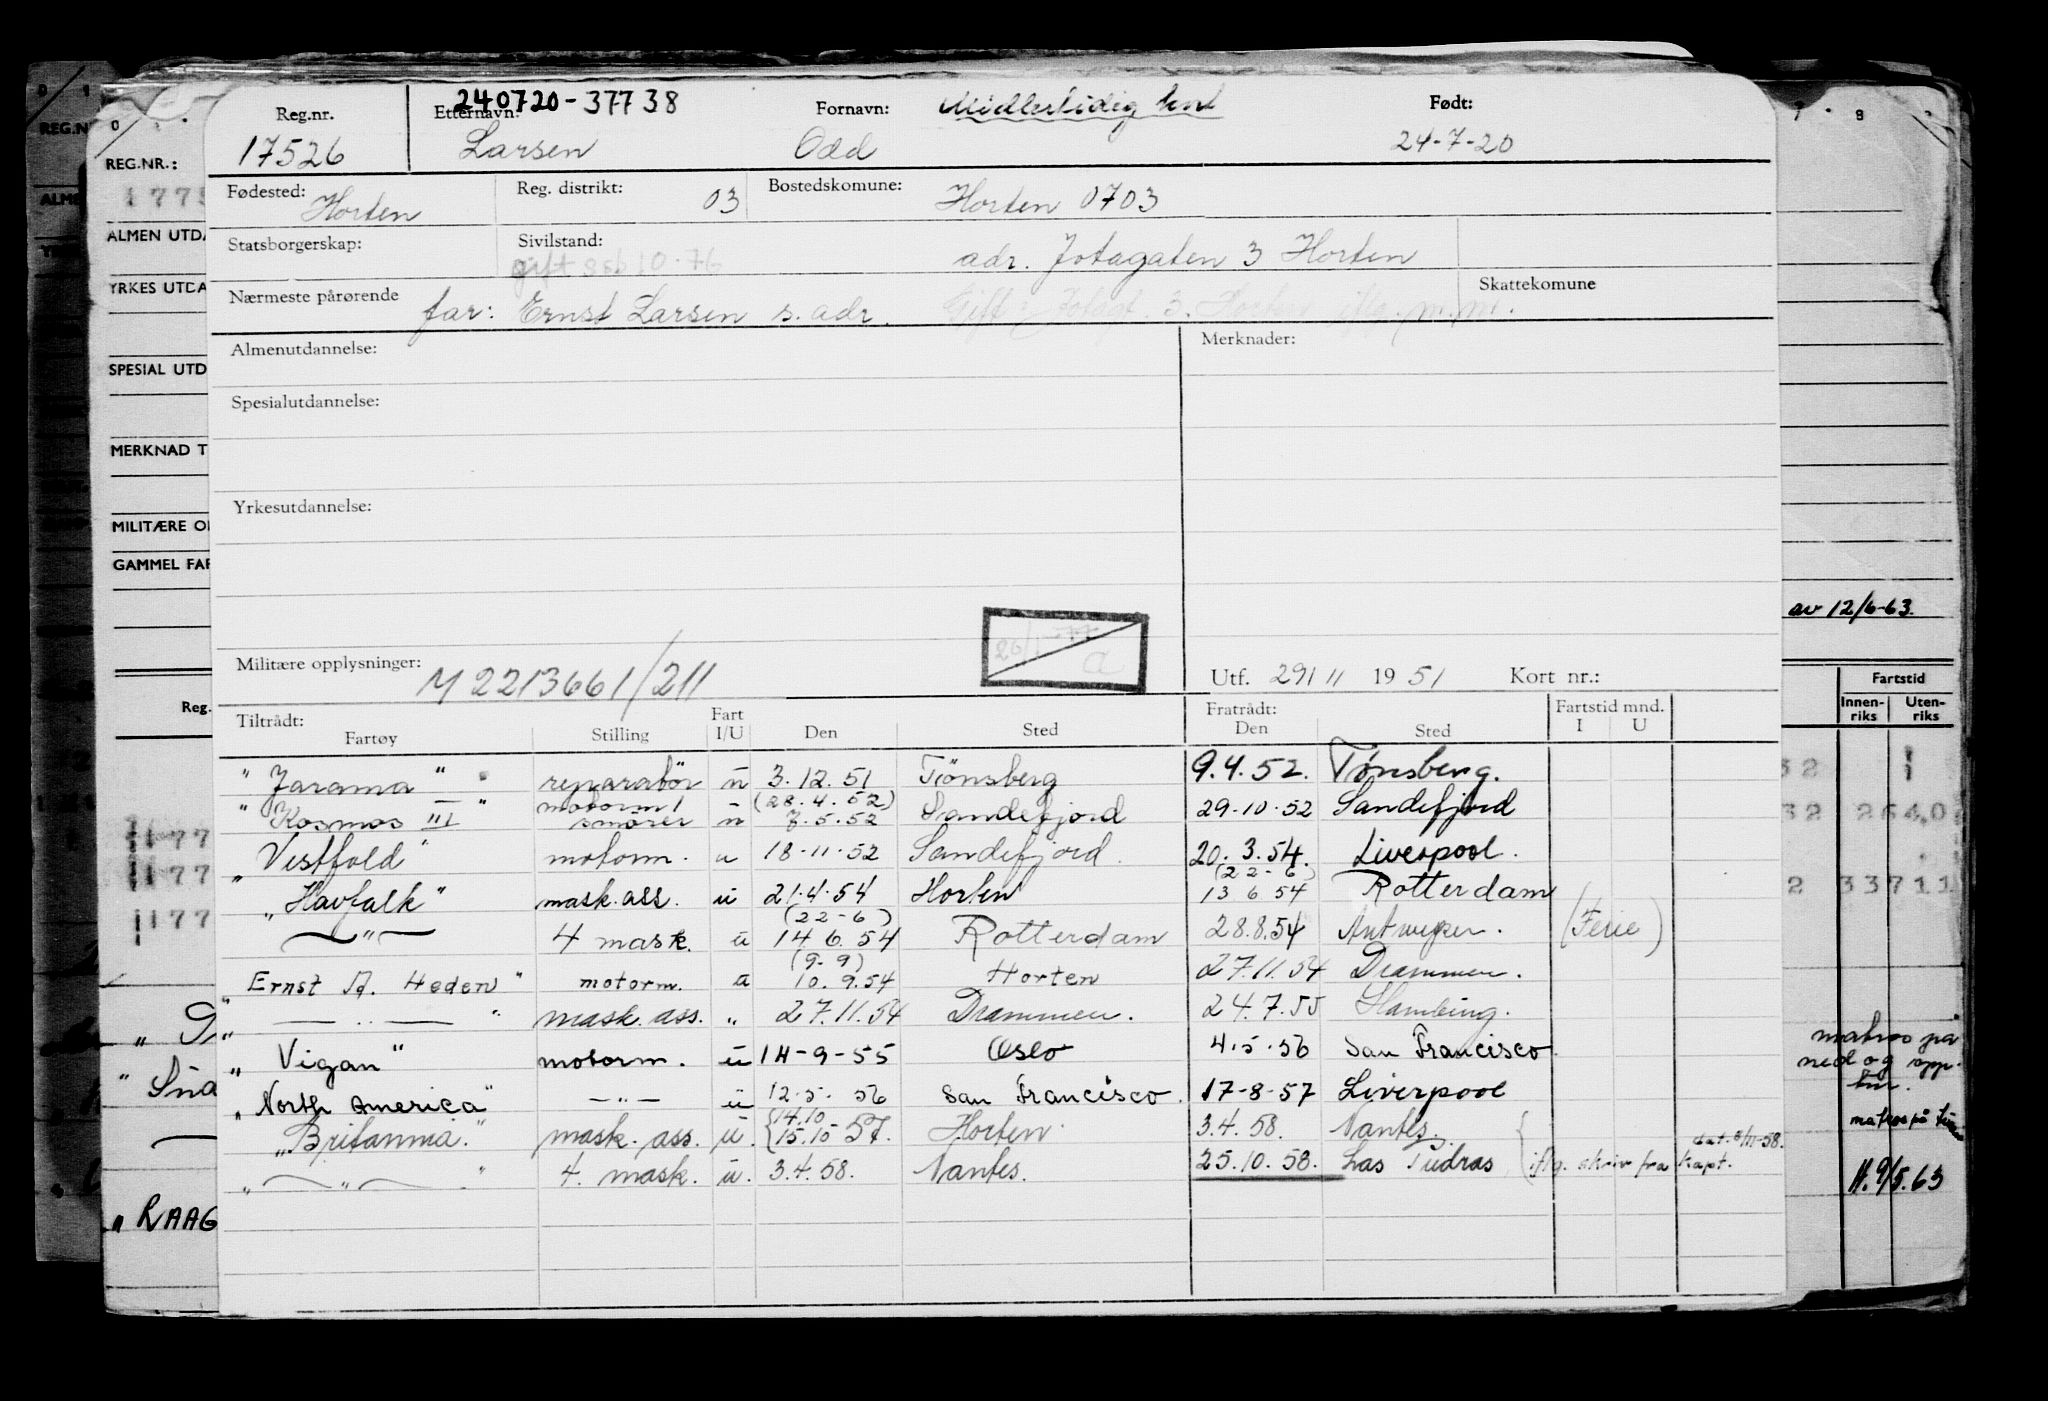 240720-37738
Reg.nr. Etternavn: Fornavn: Midlertidig kort Født:
17526 Larsen Odd 24-7-20
Fødested: Horten Reg. distrikt: 03 Bostedskomune: Horten 0703
Statsborgerskap: Sivilstand: gift adr. Jotagaten 3 Horten
Skattekomune
Nærmeste pårørende far: Ernst Larsen s. adr. Gift 3. Horten m.m.
Almenutdannelse: Merknader:
Spesialutdannelse:
Yrkesutdannelse:
Militære opplysninger: M 2213661/211 a Utf. 29/11 1951 Kort nr.:
Tiltrådt: Fart Fratrådt: Fartstid mnd.
Fartøy Stilling I/U Den Sted Den Sted I U
"Jarama" reparatør u 3.12.51 Tönsberg 9.4.52. Tønsberg.
"Kosmos III" motorm/ smörer u (28.4.52) 7.5.52 Sandefjord 29-10-52 Sandefjord
"Vestfold" motorm. u 18-11-52 Sandefjord. 20.3.54. Liverpool.
"Havfalk" mask.ass. u 21.4.54 Horten (22-6) 13 6 54 Rotterdam
—"— 4 mask. u (22-6) 14 6. 54 Rotterdam 28.8.54 Antwerpen. (Ferie)
"Ernst A. Heden" motorm. u (9-9) 10. 9.54 Horten 27.11.54 Drammen.
"— " —" mask. ass. " 27.11.54 Drammen. 24.7.55 Hamburg.
"Vigan" motorm. u 14-9-55 Oslo 4.5.56 San Francisco
"North America" —"— u 12.5.56 San Francisco. 17-8-57 Liverpool
"Britannia." mask. ass. u. {14.10 15.10 57. Horten. 3.4.58. Nantes.
"—"—" 4. mask. u. 3.4.58. Nantes. 25.10.58. Las Piedras {iflg. skriv fra Kapt. dat. 8/11-58.
REG.NR.:
ALMEN UTDA
YRKES UTDA
SPESIAL UTD
MERKNAD T
MILITÆRE O
GAMMEL FAR
Reg.
"Sna
"RAAG
av 12/6-63.
Fartstid
Innen-riks Uten-riks
32
32 2640
2 33711
matros på
ned og opp-
tur.
matros på
H. 9/5.63